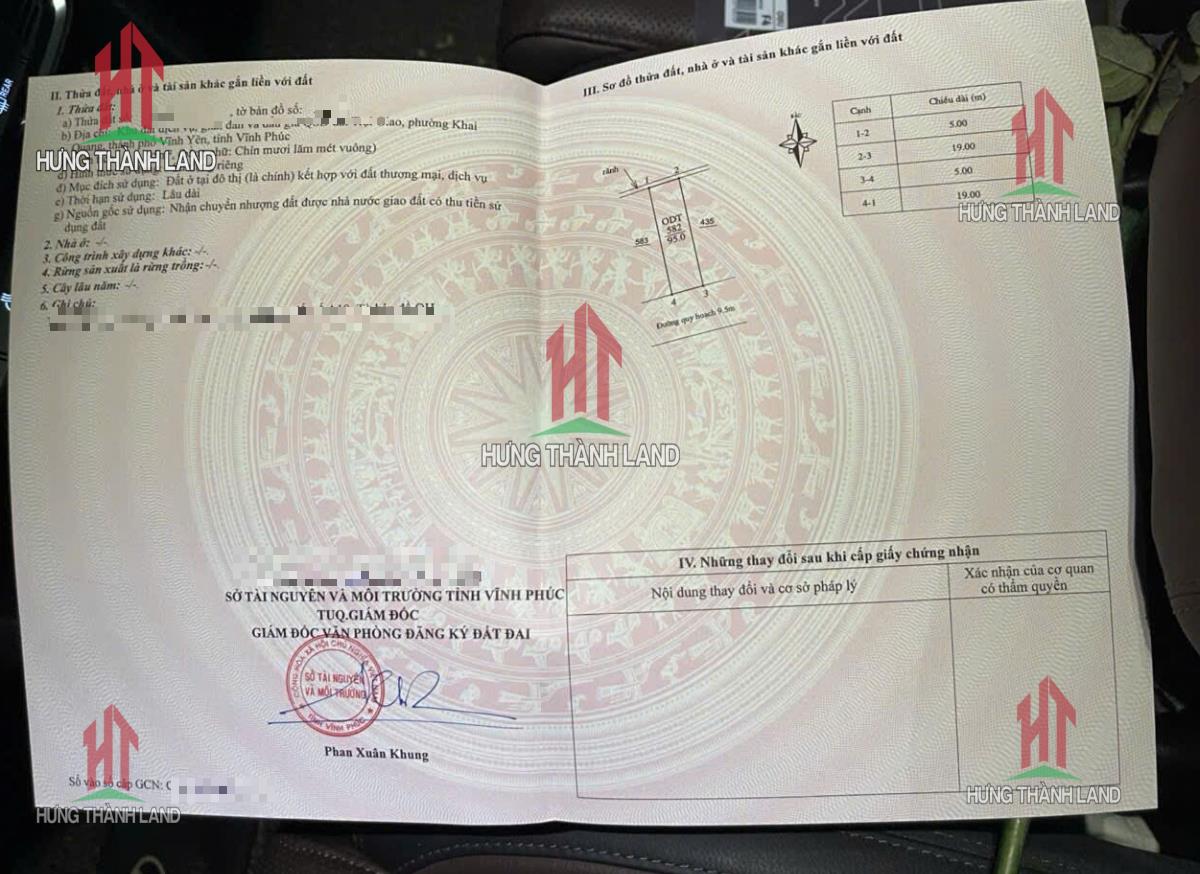 II. Thửa đất, nhà ở và tài sản khác gắn liền với đất
1. Thửa đất:
a) Thửa đất , tờ bản đồ số:
b) Địa chỉ: Khu đất dịch vụ, dân và đấu giá Giao, phường Khai
Quang, thành phố Vĩnh Yên, tỉnh Vĩnh Phúc
chữ: Chín mươi lăm mét vuông)
riêng
đ) Mục đích sử dụng: Đất ở tại đô thị (là chính) kết hợp với đất thương mại, dịch vụ
e) Thời hạn sử dụng: Lâu dài
g) Nguồn gốc sử dụng: Nhận chuyển nhượng đất được nhà nước giao đất có thu tiền sử
dụng đất
2. Nhà ở: -/-.
3. Công trình xây dựng khác: -/-.
4. Rừng sản xuất là rừng trồng: -/-.
5. Cây lâu năm: -/-.
6. Ghi chú:
SỞ TÀI NGUYÊN VÀ MÔI TRƯỜNG TỈNH VĨNH PHÚC
TUQ.GIÁM ĐỐC
GIÁM ĐỐC VĂN PHÒNG ĐĂNG KÝ ĐẤT ĐAI
CỘNG HÒA XÃ HỘI CHỦ NGHĨA VIỆT NAM
SỞ TÀI NGUYÊN
VÀ MÔI TRƯỜNG
TỈNH VĨNH PHÚC
Phan Xuân Khung
Số vào sổ cấp GCN: C
III. Sơ đồ thửa đất, nhà ở và tài sản khác gắn liền với đất
Cạnh Chiều dài (m)
1-2 5.00
2-3 19.00
3-4 5.00
4-1 19.00
BẮC
rãnh
1 2
ODT
582
95.0
583
435
4 3
Đường quy hoạch 9.5m
IV. Những thay đổi sau khi cấp giấy chứng nhận
Nội dung thay đổi và cơ sở pháp lý
Xác nhận của cơ quan
có thẩm quyền
HƯNG THÀNH LAND
HƯNG THÀNH LAND
HƯNG THÀNH LAND
HƯNG THÀNH LAND
HƯNG THÀNH LAND
REAR